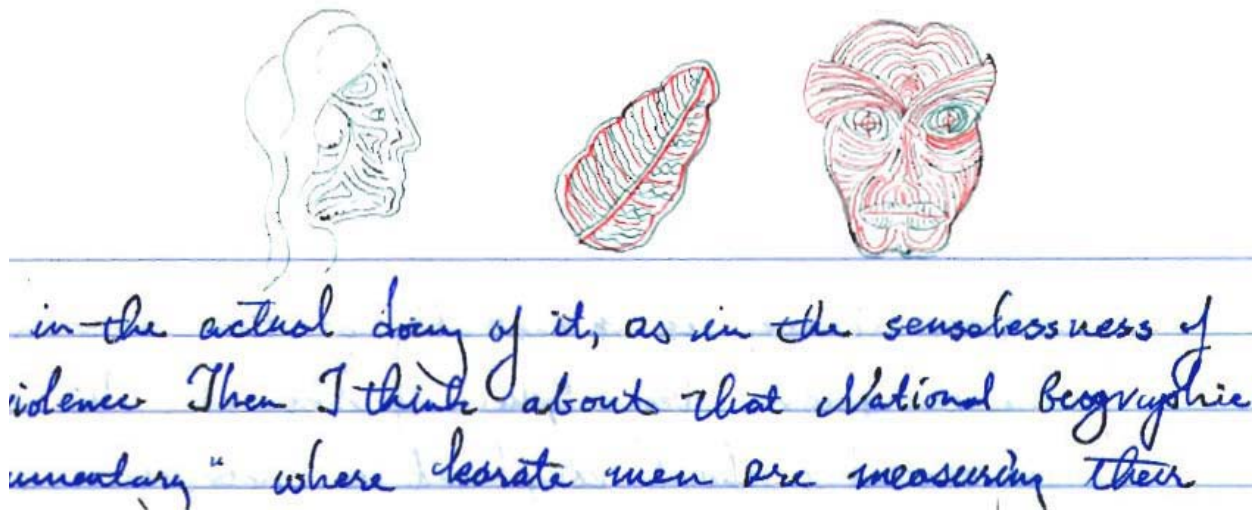 in the actual doing of it, as in the senselessness of
iolence Then I think about that National Geographic
umentary" where karate men are measuring their